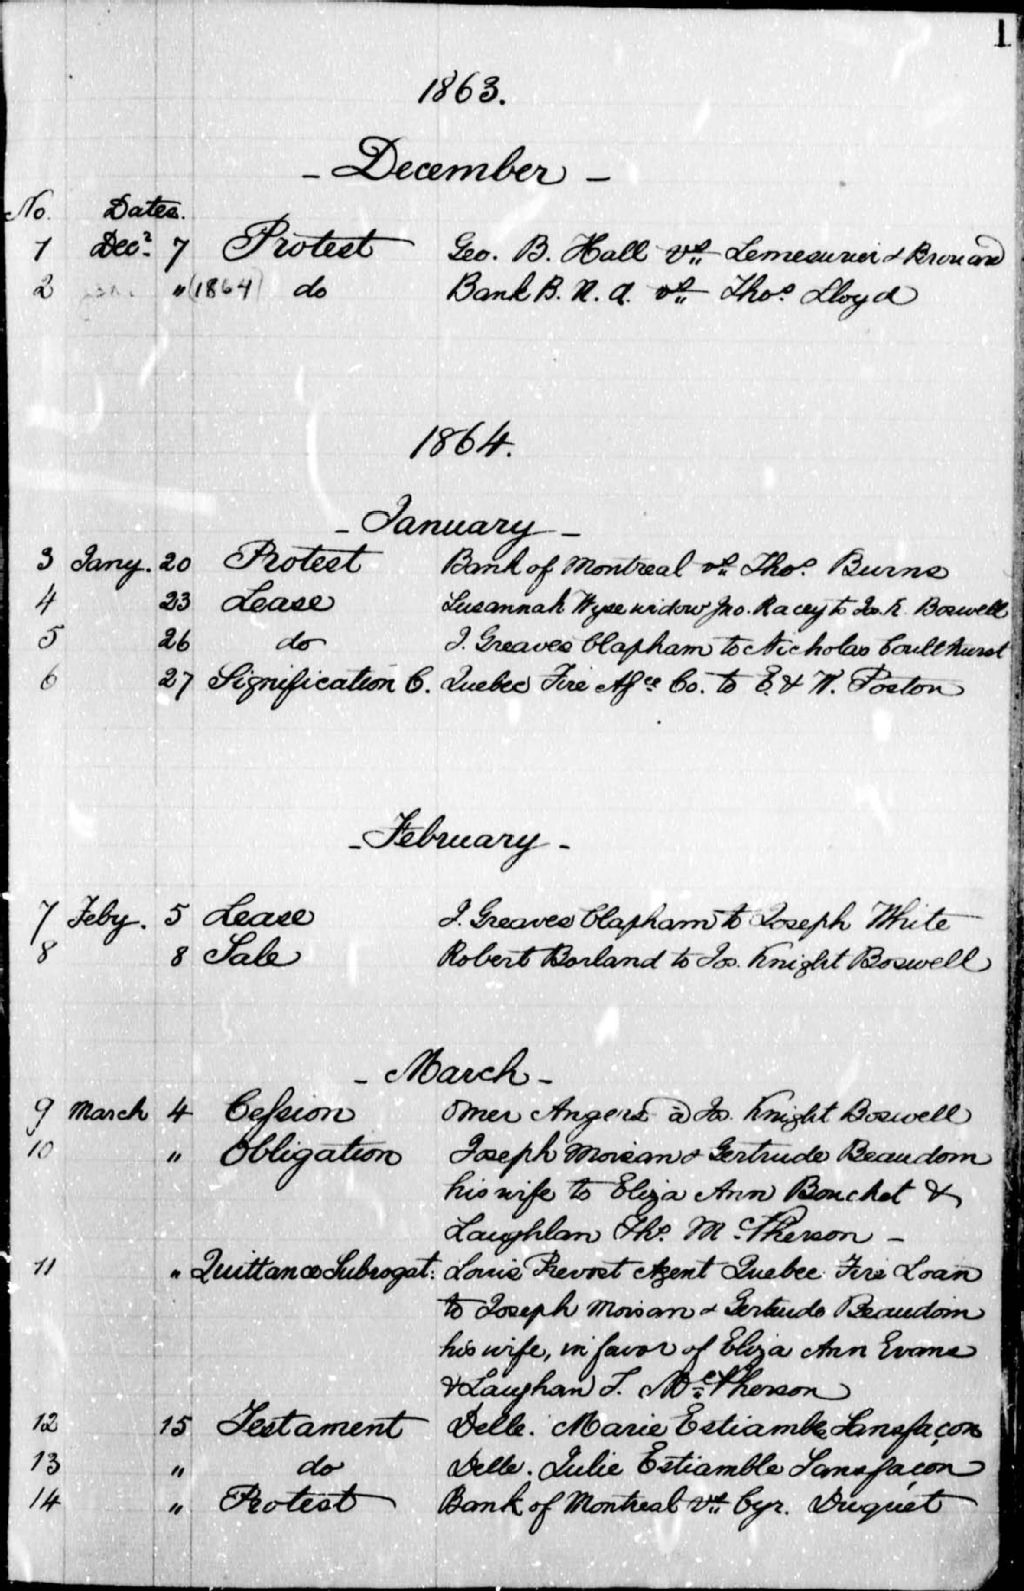 1
1863.
- December -
No. Dates.
1 Decr 7 Protest Geo. B. Hall vs Lemesurier & Brouard
2 " (1864) do Bank B. N. A. vs Thos Lloyd
1864.
- January -
3 Jany. 20 Protest Bank of Montreal vs Thos. Burns
4 23 Lease Susannah Wyse widow Jno. Racey to Jos. K. Boswell
5 26 do J. Greaves Clapham to Nicholas Coulthurst
6 27 Signification C. Quebec Fire Asce Co. to E. & W. Poston
- February -
7 Feby. 5 Lease J. Greaves Clapham to Joseph White
8 8 Sale Robert Borland to Jos. Knight Boswell
- March -
9 March 4 Cession Omer Angers à Jos. Knight Boswell
10 " Obligation Joseph Moisan & Gertrude Beaudoin
his wife to Eliza Ann Bouchet &
Laughlan Ths. McPherson -
11 " Quittance Subrogat: Louis Prevost Agent Quebec Fire Loan
to Joseph Moisan & Gertrude Beaudoin
his wife, in favor of Eliza Ann Evans
& Laughan T. McPherson
12 15 Testament Delle. Marie Estiamble Sansfaçon
13 " do Delle. Julie Estiamble Sansfaçon
14 " Protest Bank of Montreal vs Cyr. Duquet